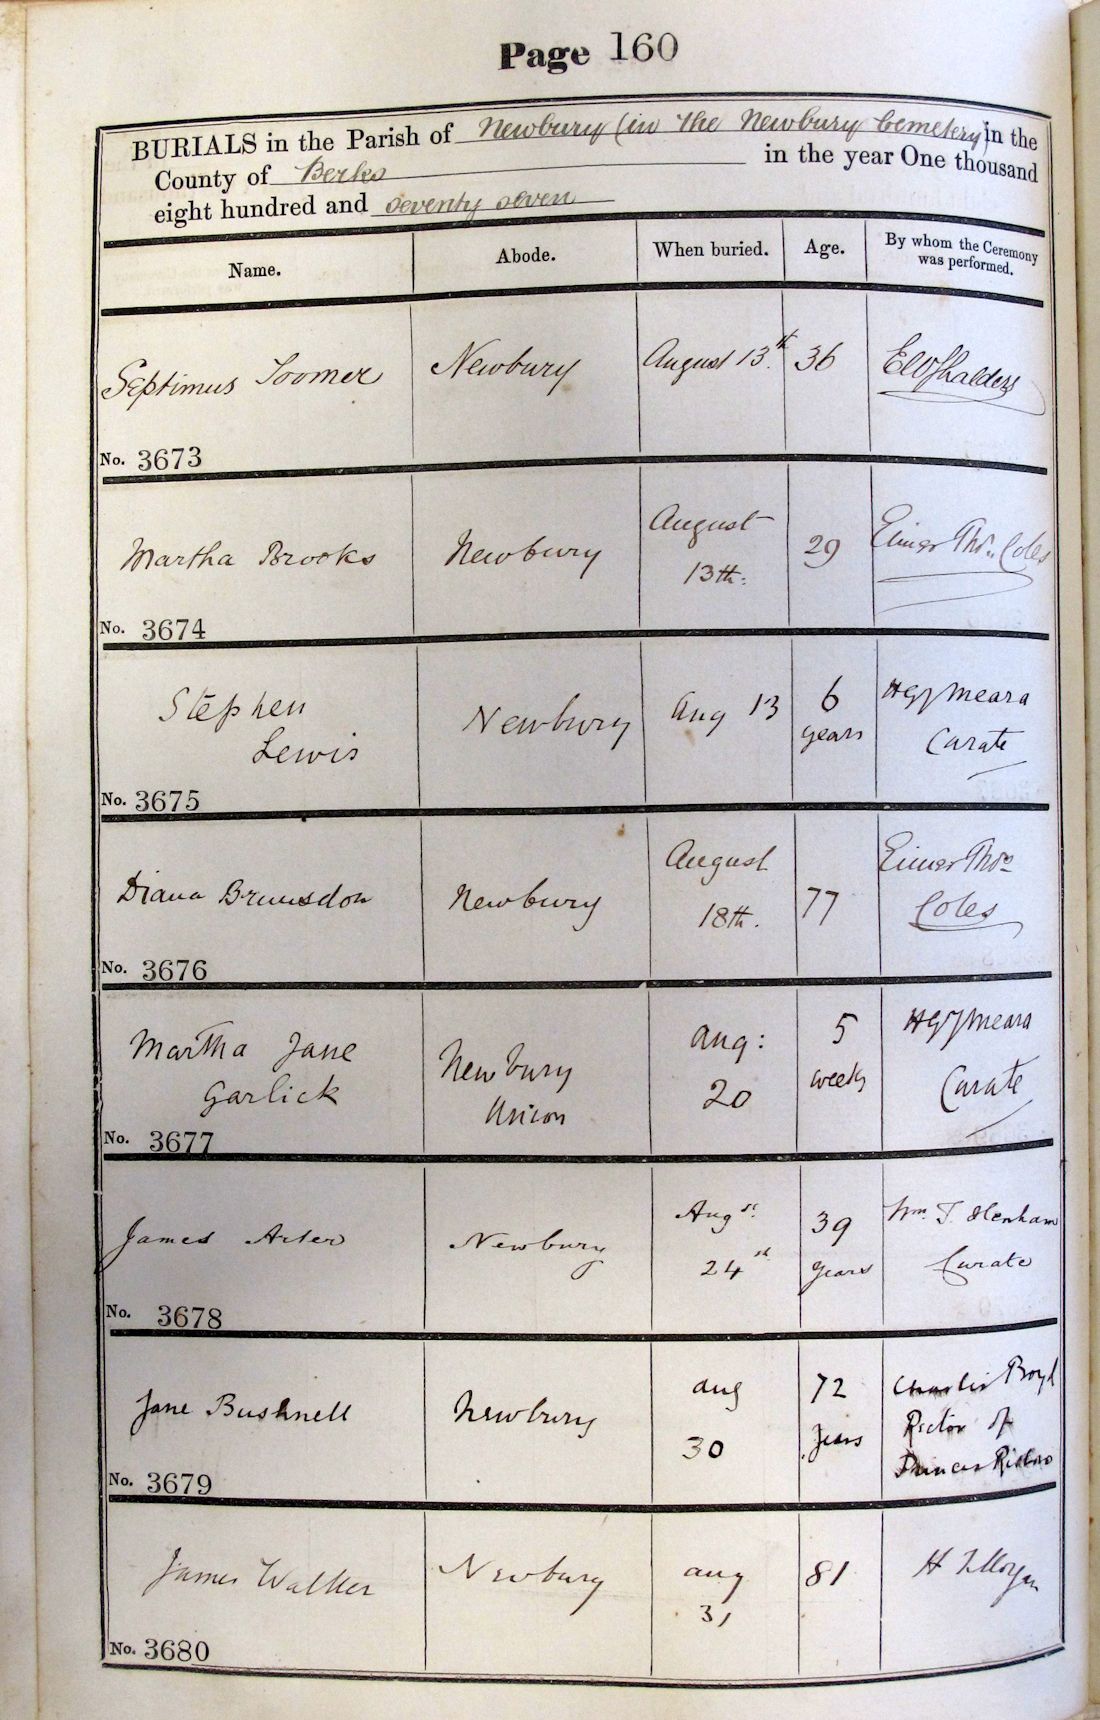 Page 160
BURIALS in the Parish of Newbury (in the Newbury Cemetery) in the
County of Berks in the year One thousand
eight hundred and seventy seven
Name. Abode. When buried. Age. By whom the Ceremony
was performed.
Septimus Toomer Newbury August 13th. 36
No. 3673
August
Martha Brooks Newbury 13th. 29 Thos. Coles
No. 3674
Stephen Newbury Aug 13 6 Meara
Lewis years Curate
No. 3675
August Thos
Diana Brunsdon Newbury 18th. 77 Coles
No. 3676
Martha Jane Newbury Aug: 5 Meara
Garlick Union 20 weeks Curate
No. 3677
Augst 39 Wm. T. Henham
James Arter Newbury 24th years Curate
No. 3678
Aug 72 Charles Boyd
Jane Bushnell Newbury 30 years Rector of
Princes Risboro
No. 3679
James Walter Newbury Aug 81 H T Morgan
31
No. 3680